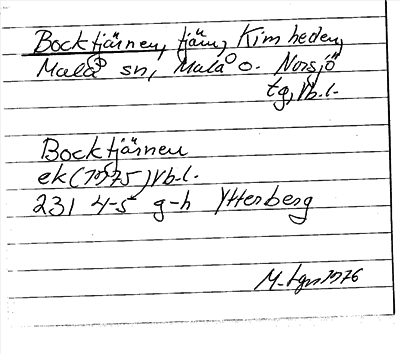 Bocktjärnen, tjärn, Kimheden,
Malå sn, Malå o. Norsjö
tg, Vb.l.
Bocktjärnen
ek (1975) Vb.l.
231 4-5 g-h Ytterberg
1976